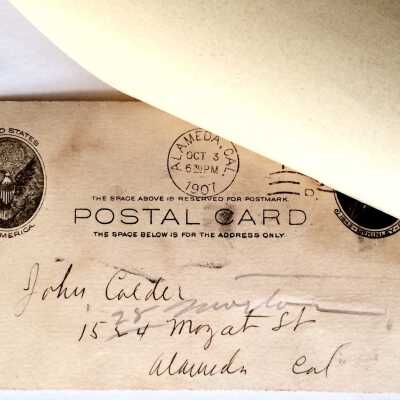 UNITED STATES
AMERICA
ALAMEDA, CAL.
OCT 3
6 30 PM
1907
D.
THE SPACE ABOVE IS RESERVED FOR POSTMARK.
POSTAL CARD
THE SPACE BELOW IS FOR THE ADDRESS ONLY.
John Calder
28 Morton
1524 Mozat St
Alameda Cal